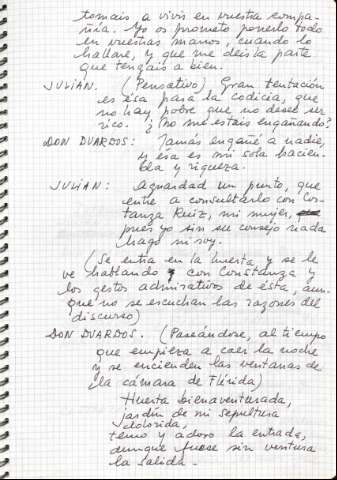 tomais a vivir en vuestra compa-
ñía. Yo os prometo ponerlo todo
en vuestras manos, cuando lo
hallare, y que me deis la parte
que tengáis a bien.
JULIÁN. (Pensativo) Gran tentación
es ésa para la codicia, que
no hay pobre que no desee ser
rico. ¿No me estáis engañando?
DON DUARDOS: Jamás engañé a nadie,
y ésa es mi sola hacien-
da y riqueza.
JULIÁN: Aguardad un punto, que
entre a consultarlo con Cos-
tanza Ruiz, mi mujer,
pues yo sin su consejo nada
hago ni soy.
(Se entra en la huerta, y se le
ve hablando con Constanza y
los gestos admirativos de ésta, aun-
que no se escuchan las razones del
discurso)
DON DUARDOS. (Paseándose, al tiempo
que empieza a caer la noche
y se encienden las ventanas de
la cámara de Flérida)
Huerta bienaventurada,
jardín de mi sepultura
dolorida,
temo y adoro la entrada,
aunque fuese sin ventura
la salida.-